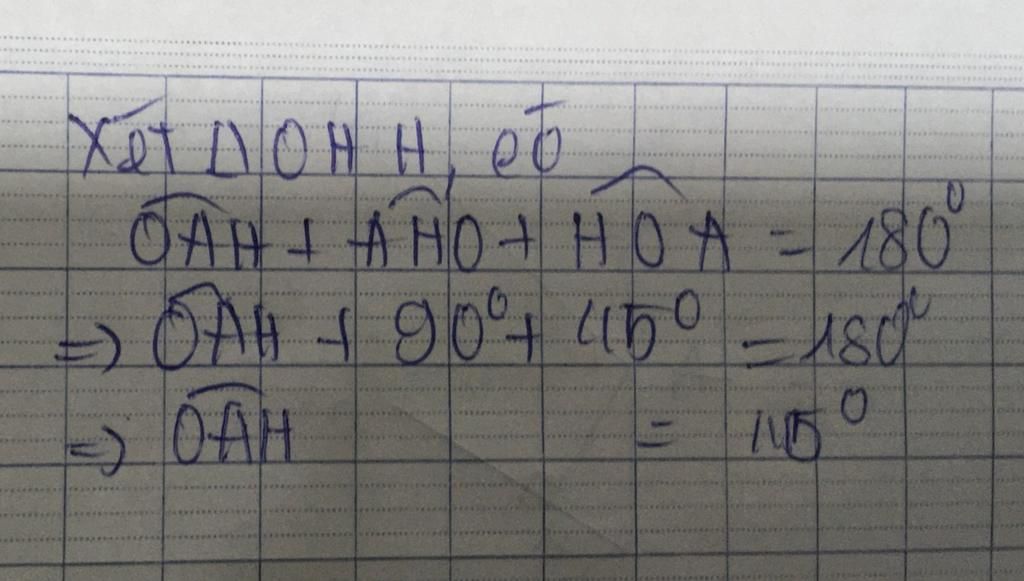 Xét Δ OAH, có
OAH + AHO + HOA = 180⁰
=> OAH + 90⁰ + 45⁰ = 180⁰
=> OAH = 45⁰